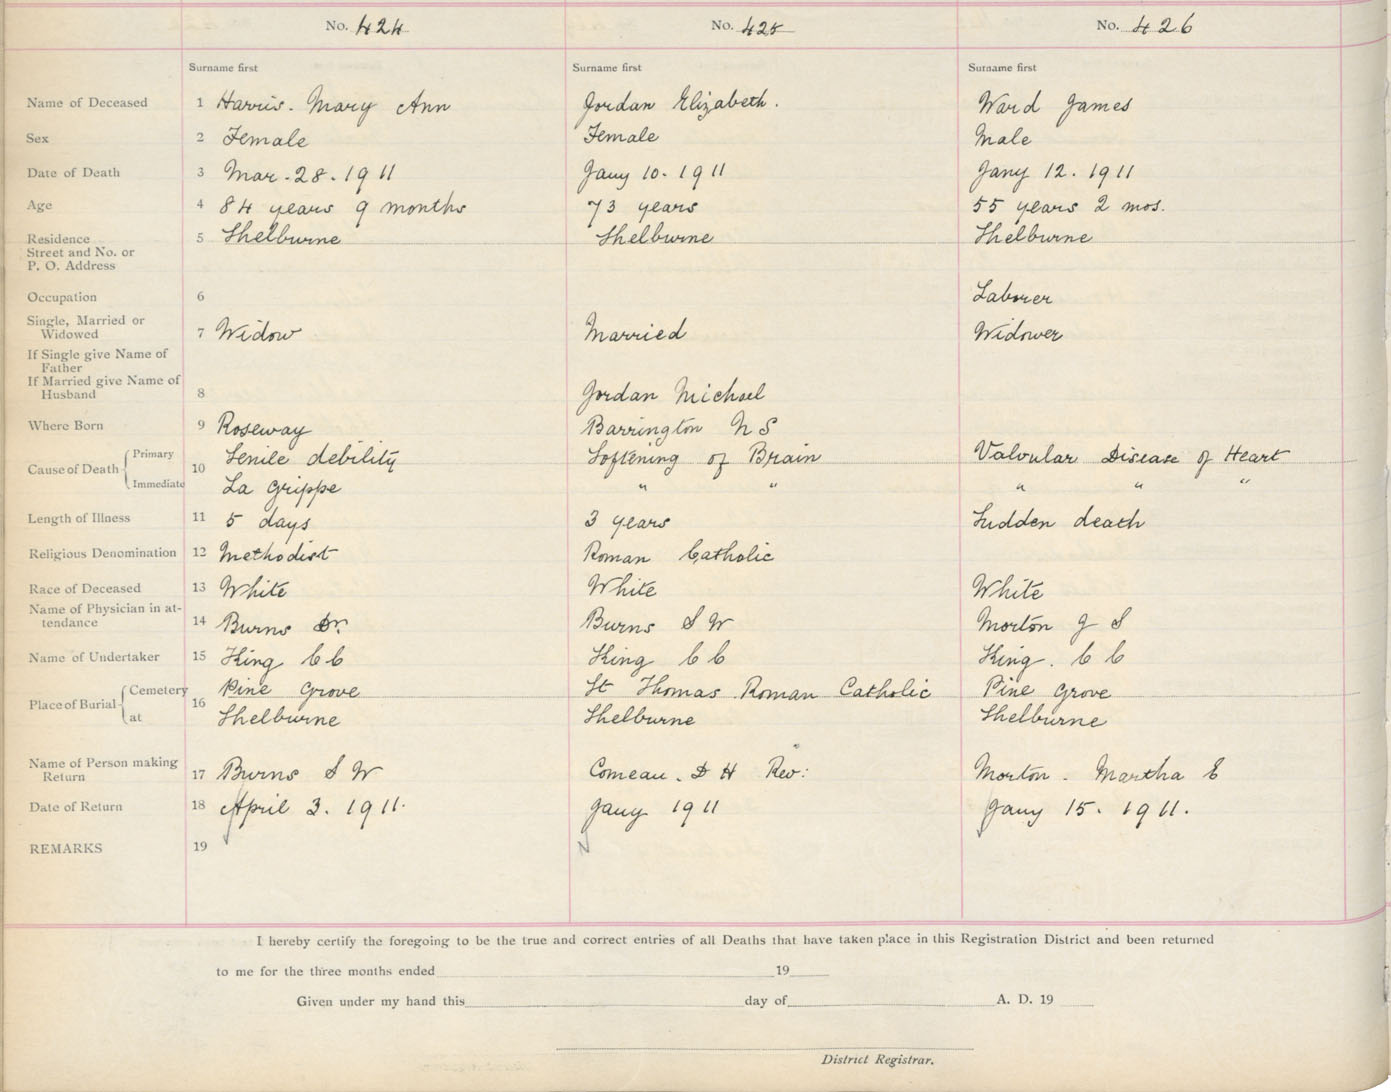 No. 424 No. 425 No. 426
Surname first Surname first Surname first
Name of Deceased 1 Harris. Mary Ann Jordan Elizabeth. Ward James
Sex 2 Female Female Male
Date of Death 3 Mar. 28. 1911 Jany 10. 1911 Jany 12. 1911
Age 4 84 years 9 months 73 years 55 years 2 mos.
Residence 5 Shelburne Shelburne Shelburne
Street and No. or
P. O. Address
Occupation 6 Laborer
Single, Married or
Widowed 7 Widow Married Widower
If Single give Name of
Father
If Married give Name of
Husband 8 Jordan Michael
Where Born 9 Roseway Barrington N S
Cause of Death Primary 10 Senile debility Softening of Brain Valvular Disease of Heart
Immediate La Grippe " " " " "
Length of Illness 11 5 days 3 years Sudden death
Religious Denomination 12 Methodist Roman Catholic
Race of Deceased 13 White White White
Name of Physician in at-
tendance 14 Burns Dr. Burns S W Morton J S
Name of Undertaker 15 King C C King C C King. C C
Place of Burial Cemetery 16 Pine Grove St Thomas Roman Catholic Pine Grove
at Shelburne Shelburne Shelburne
Name of Person making
Return 17 Burns S W Comeau. D H Rev: Morton. Martha E
Date of Return 18 April 3. 1911. Jany 1911 Jany 15. 1911.
REMARKS 19
I hereby certify the foregoing to be the true and correct entries of all Deaths that have taken place in this Registration District and been returned
to me for the three months ended 19
Given under my hand this day of A. D. 19
District Registrar.